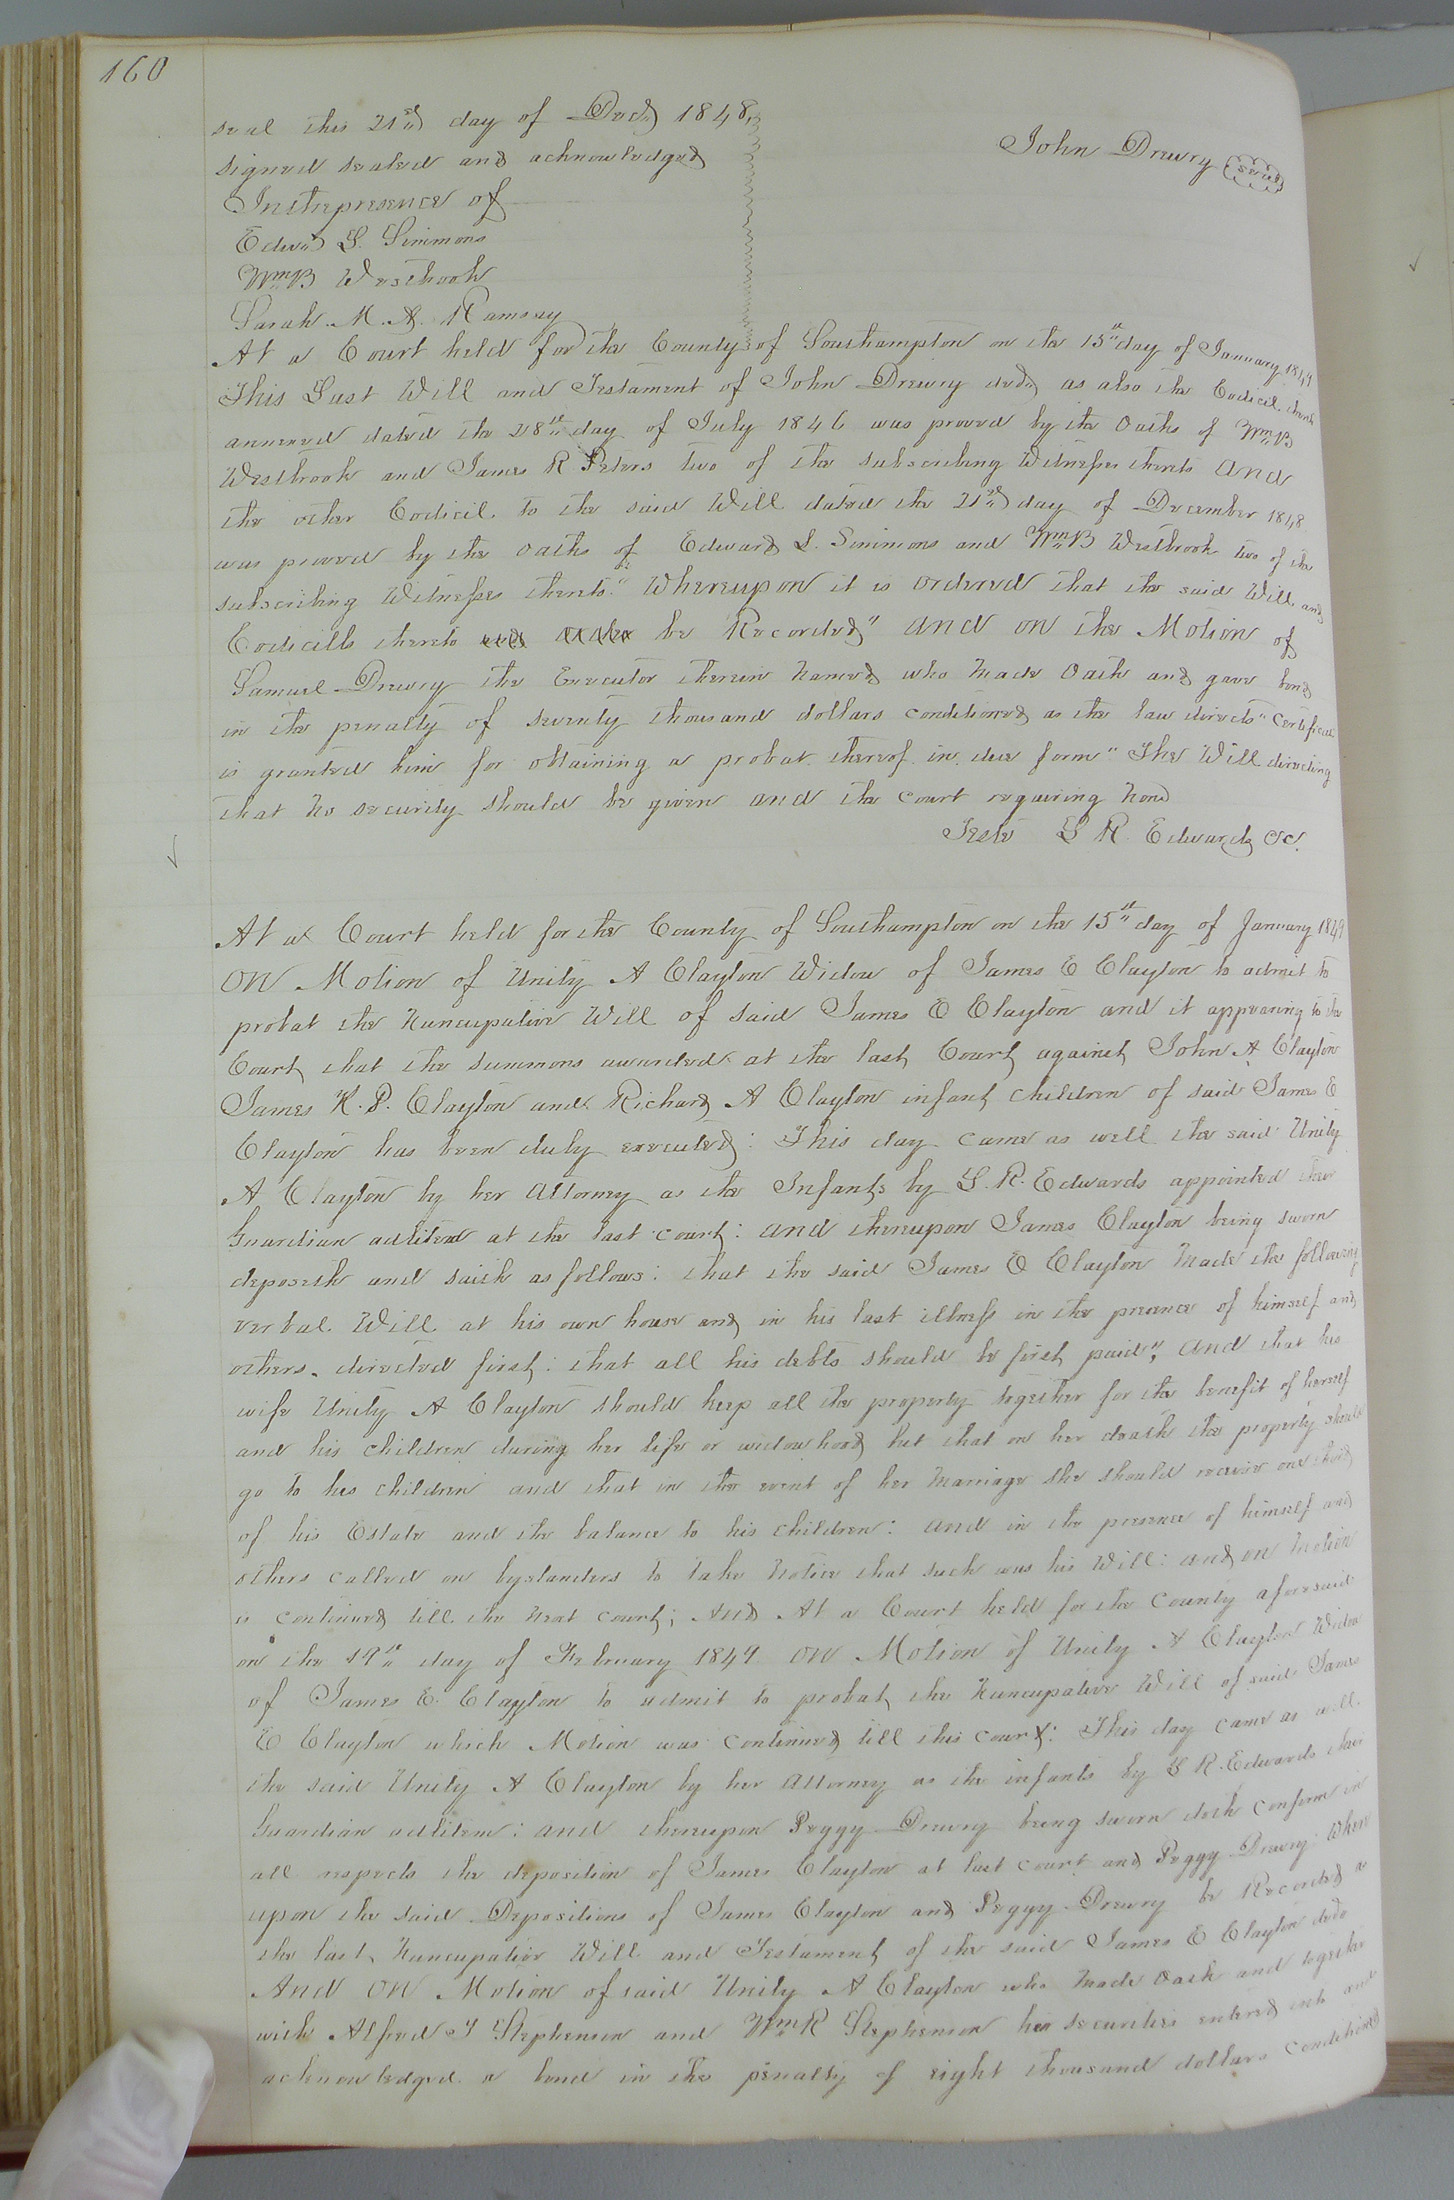 160
seal this 21st day of Decr 1848,
signed sealed and acknowledged
In the presence of
John Drewry (seal)
Edwd L. Simmons
Wm B Westbrook
Sarah. M. A. Ramsey
At a Court held for the County of Southampton on the 15th day of January 1849
This Last Will and Testament of John Drewry decd as also the Codicil thereto
annexed dated the 28th day of July 1846 was proved by the Oaths of Wm B
Westbrook and James R Peters two of the subscribing Witnesses thereto And
the other Codicil to the said Will dated the 21st day of December 1848
was proved by the oaths of Edward L. Simmons and Wm B Westbrook two of the
subscribing Witnesses thereto." Whereupon it is Ordered that the said Will and
Codicills thereto be Recorded" And on the Motion of
Samuel Drewry the Executor therein Named who Made Oath and gave bond
in the penalty of seventy thousand dollars conditioned as the law directs" Certificate
is granted him for obtaining a probat thereof in due form" The Will directing
that No security should be given and the court requiring None
Teste L R. Edwards CC.
At a Court held for the County of Southampton on the 15th day of January 1849
On Motion of Unity A Clayton Widow of James E Clayton to admit to
probat the Nuncupative Will of said James E Clayton and it appearing to the
Court that the summons awarded at the last Court against John A Clayton
James K. P. Clayton and Richard A Clayton infant children of said James E
Clayton has been duly executed: This day came as well the said Unity
A Clayton by her Attorney as the Infants by L. R. Edwards appointed their
Guardian adlitem at the last court: And thereupon James Clayton being sworn
deposeth and saith as follows: that the said James E Clayton Made the following
verbal Will at his own house and in his last illness in the presence of himself and
others. directed first: that all his debts should be first paid", And that his
wife Unity A Clayton should keep all the property together for the benefit of herself
and his children during her life or widowhood but that on her death the property should
go to his children and that in the event of her Marriage she should receive one third
of his Estate and the balance to his children: And in the presence of himself and
others called on bystanders to take Notice that such was his Will: and on Motion
is continued till the Next court; And At a Court held for the County aforesaid
on the 19th day of February 1849 On Motion of Unity A Clayton Widow
of James E. Clayton to admit to probat the Nuncupative Will of said James
E Clayton which Motion was continued till this court: This day came as well
the said Unity A Clayton by her Attorney as the infants by L R. Edwards their
Guardian adlitem: And thereupon Peggy Drewry being sworn doth conform in
all respects the deposition of James Clayton at last court and Peggy Drewry When
upon the said Depositions of James Clayton and Peggy Drewry be Recorded as
the last Nuncupative Will and Testament of the said James E Clayton decd
And On Motion of said Unity A Clayton who Made Oath and together
with Alfred J Stephenson and Wm R Stephenson her securities entered into and
acknowledged a bond in the penalty of eight thousand dollars conditioned